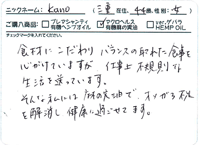 ニックネーム: Kano (三重 在住, 44歳, 性別: 女)
ご購入商品: □プレマシャンティ 有機ヘンプオイル ☑ククロヘルス 有機麻の実油 □ver.サバラ HEMP OIL
チェックマークを入れてください。
食材にこだわり バランスの取れた食事を
心がけていますが 仕事上 不規則な
生活を送っています。
そんな私には 1杯の麻油で、オメガ3不足
を解消し 健康に過ごせてます。